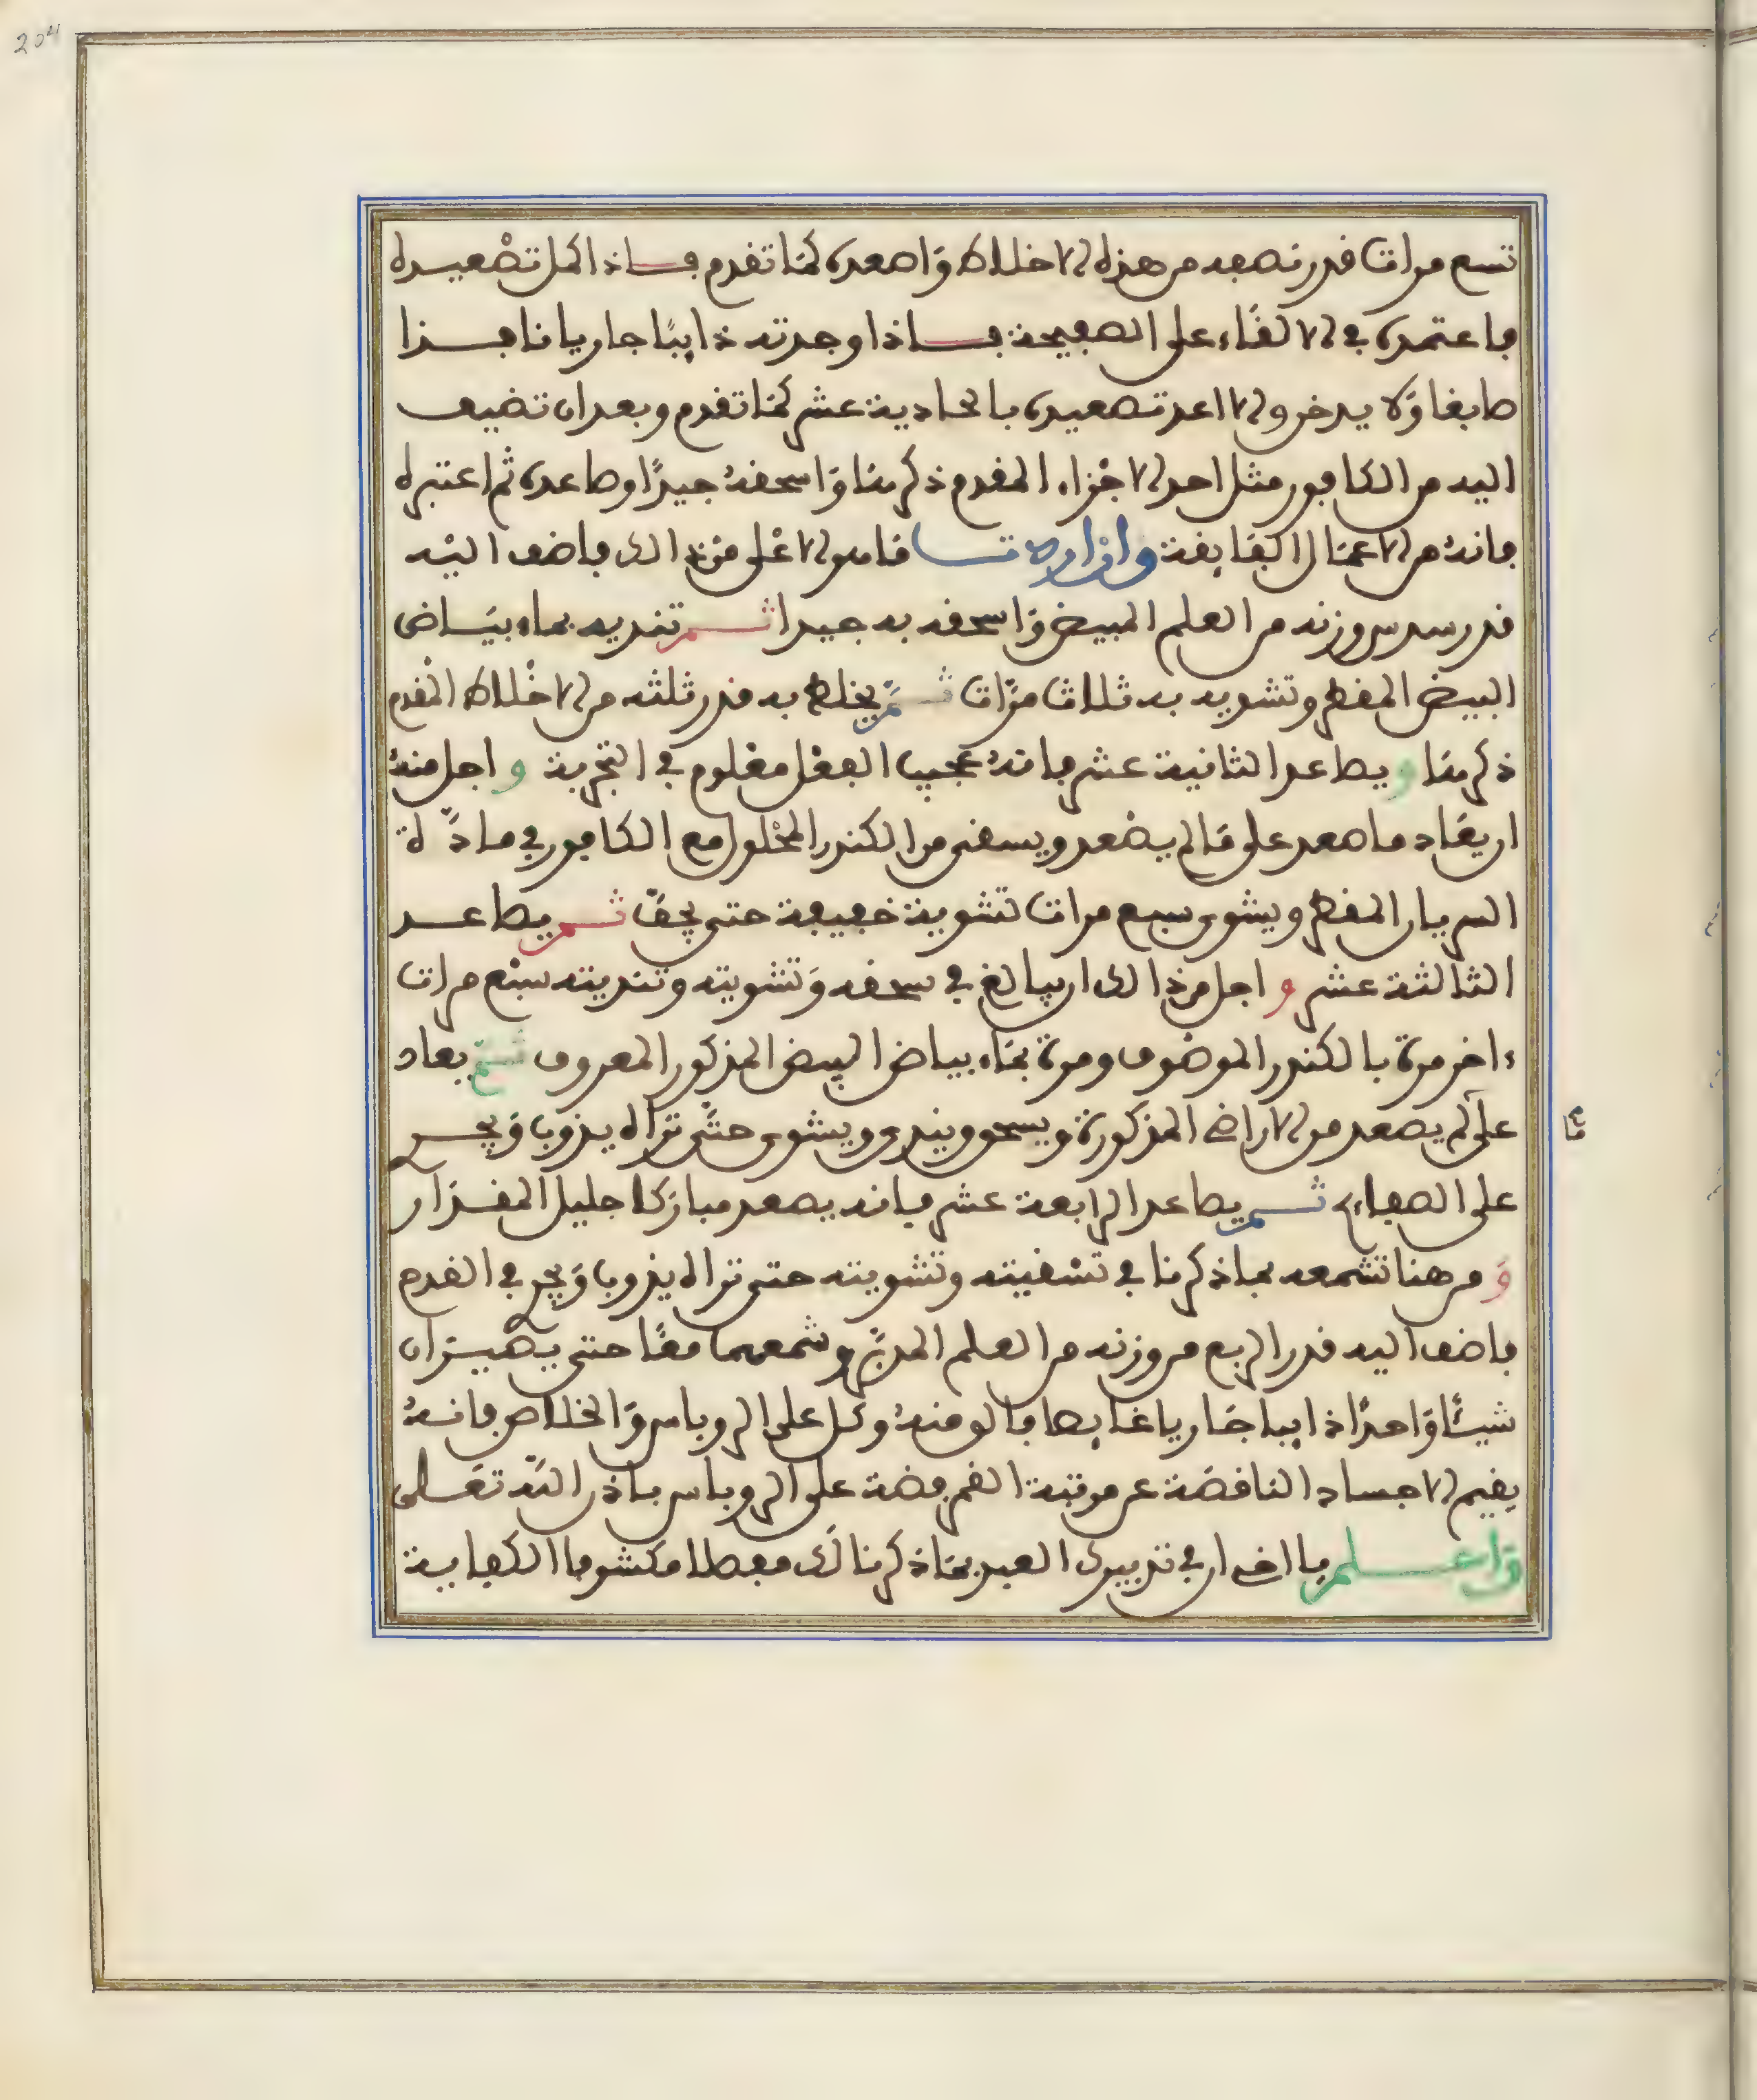 204
تسع مرات قدر نصفه من هذه الاخلاط وَاصعده كمَا تقدم فـــاذا كمل تصْعيـده
فاعتمده في الالقَاء على الصفيحة فـــاذا وجدته ذايبًا جاريا نافـــذا
صابغا وَلا يدخن والا اعد تصعيده بالحادية عشر كمَا تقدم وبعد ان تضيف
اليه من الكافور مثل احد الاجْزاء المقدم ذكرهَا وَاسحقهُ جيدًا وصاعده ثم اعتبره
فانهُ من الاعمَال الكبَا يقة وان اردتـــا مَا هو الاعْلى من ذالك فاضف اليْه
قدر سدس وزنه من العلم المبيض وَاسحقه به جيدا ثـــم تنديه بماء بيَـاض
البيض المقطر وتشويه به ثلاث مرَّات ثـــمَّ يخلط به قدر ثلثه من الاخْلاط المْقدم
ذكرهَا ويصاعد الثانية عشر فانهُ عجيب الفعْل معْلوم في التجْربة واجل منهُ
ان يعَاد ما صعد على مَا لم يصْعد ويسقى من الكندر المحْلول مع الكافور في ماء دَّلة
السريان المقطر ويشوى سبع مرات تشوية خفيفة حتى يجفّ ثـــم يصاعـــد
الثالثة عشر واجل من ذالك ان يبالغ في سحقه وَتشويته وتنديته سبْع مرات
ءاخر مرة بالكندر الموصْوف ومرة بمَاء بياض البيض المذكور المعروف ثـــمّ يعاد
على لم يصعد من الاراضي المذكورة ويسحق ويندى ويشوى حتَّى تراه يذوب وَيجـــري
ما
على الصفايح ثـــم يصاعد الرابعة عشر فانه يصعد مباركا جليل المقـدَار
وَ من هنا تشمعه بما ذكرنا في تسْقيته وتشويته حتى تراه يذوب وَيجري في القدم
فاضف اليه قدر الربع من وزنه من العلم المدبَّر وشمعهما معًا حتى يصيـران
شيئًا وَاحدًا ذايبا جَاريا غايصا فالق منهُ وكل على الروباس وَالخلاص فانـهُ
يقيم الاجساد الناقصَة عن مرتبة القمر فضة على الروباس باذن اللّه تعَـــلى
وَاعـــلم يا اخي ان في تدبيرك العبد بمَا ذكرنا لك مفصلا مكشوفا الكفاية